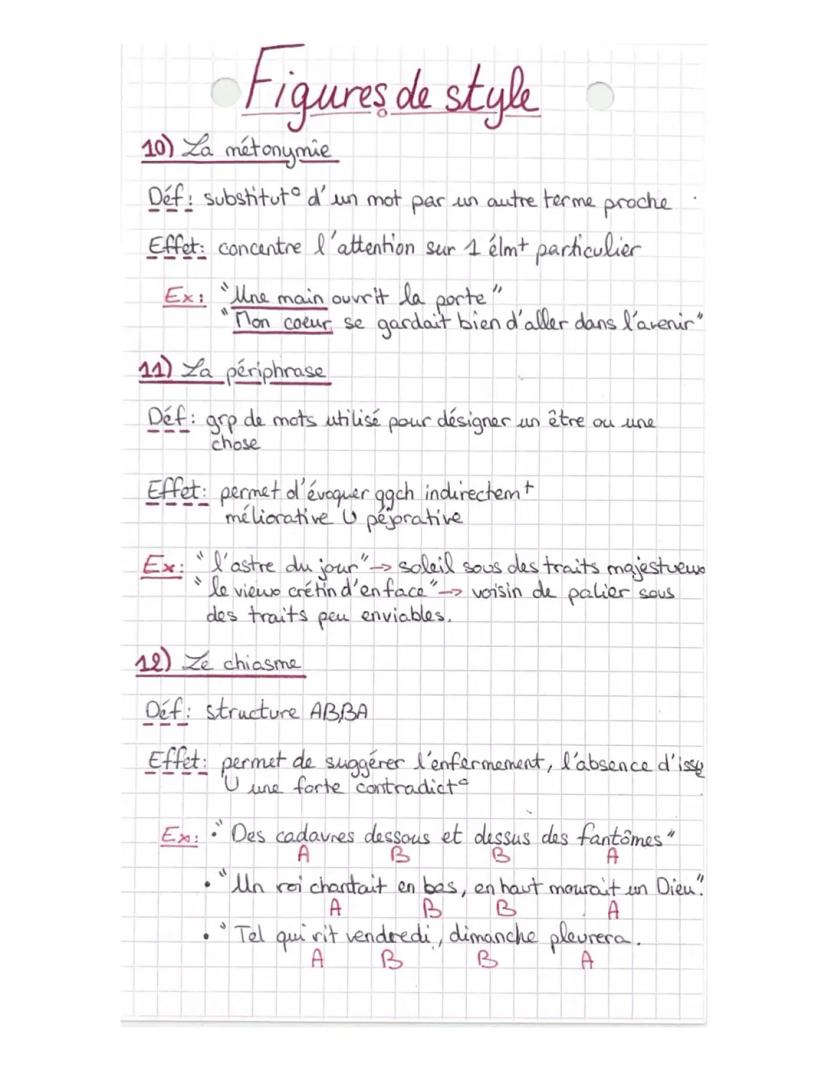 Figures de style
10) La métonymie
Déf: substitut° d'un mot par un autre terme proche
Effet: concentre l'attention sur 1 élmt particulier
Ex: "Une main ouvrit la porte"
"Mon coeur se gardait bien d'aller dans l'avenir"
11) La périphrase
Déf: grp de mots utilisé pour désigner un être ou une
chose
Effet: permet d'évoquer qqch indirectemt
méliorative U péjorative
Ex: "l'astre du jour" → soleil sous des traits majestueux
"le vieux crétin d'en face" → voisin de palier sous
des traits peu enviables.
12) Le chiasme
Déf: structure ABBA
Effet: permet de suggérer l'enfermement, l'absence d'issue
U une forte contradict°
Ex: • "Des cadavres dessous et dessus des fantômes"
A B B A
• "Un roi chantait en bas, en haut mourait un Dieu".
A B B A
• "Tel qui rit vendredi, dimanche pleurera.
A B B A